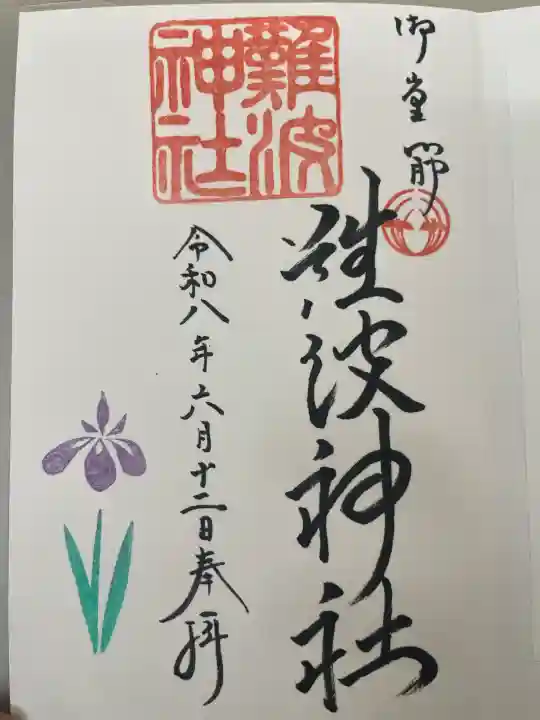 御堂筋
難波神社
難波神社
令和八年六月十二日奉拝